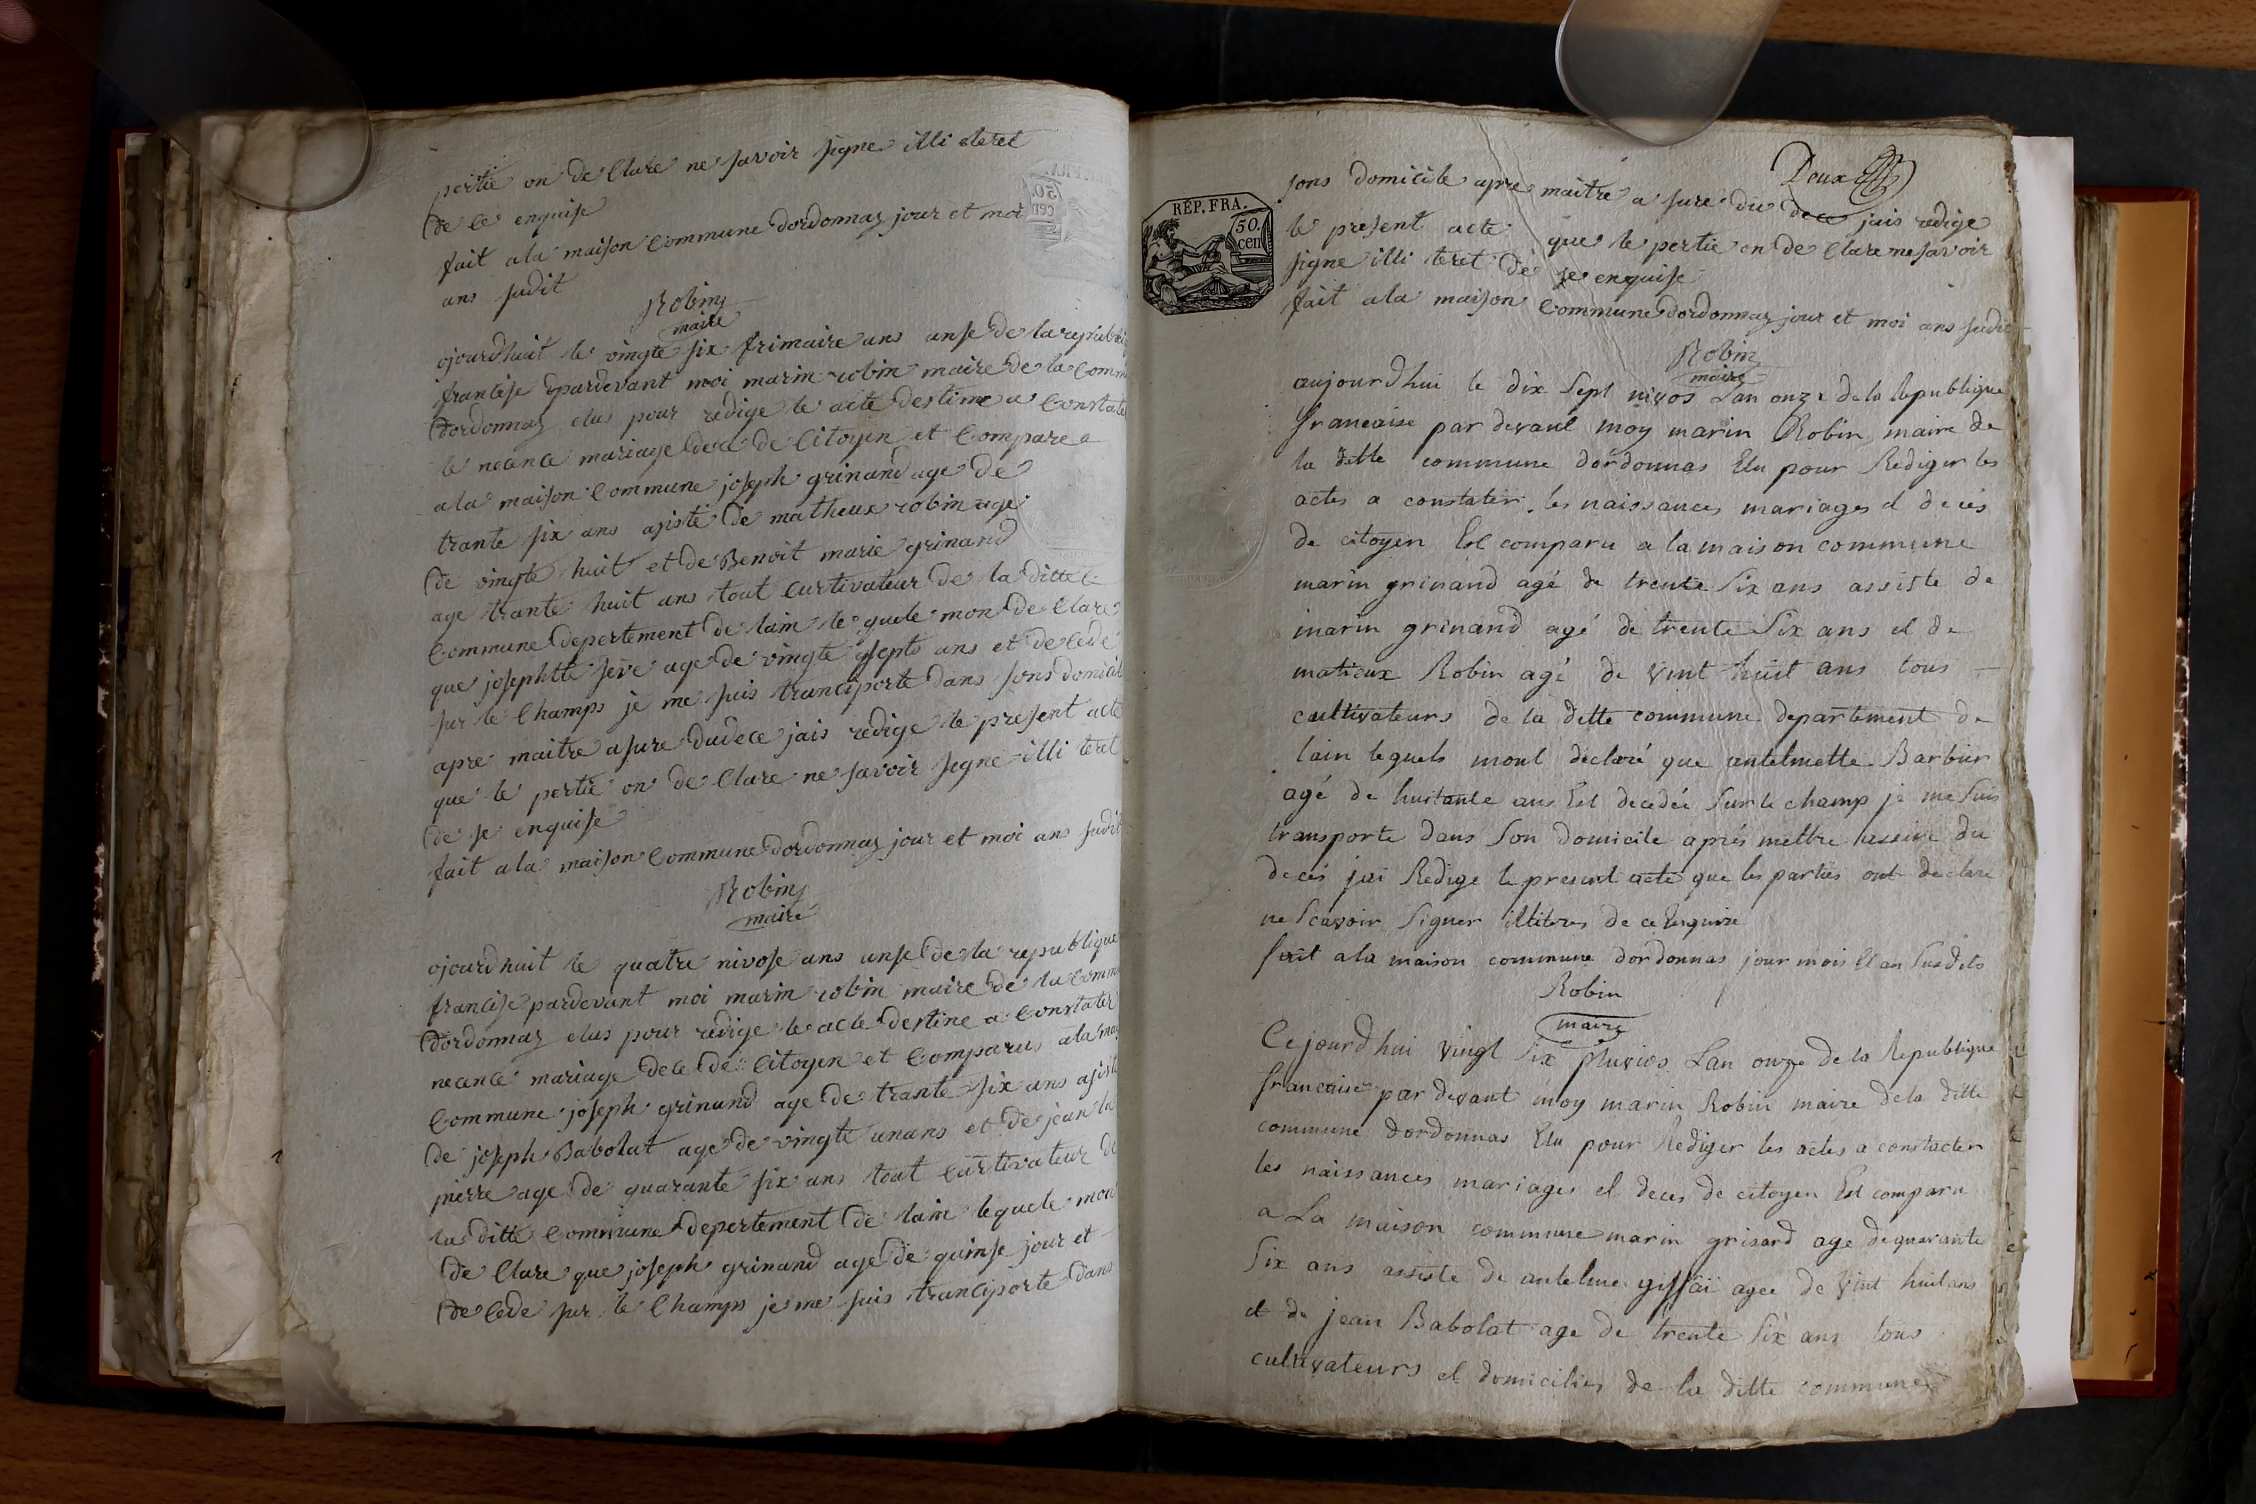 pertie on de Clare ne savoir signe illi teret
de ce enquise
fait a la maison Commune dordonnaz jour et moi
ans sudit
Robin
maire
ojourdhuit le vingte six frimaire ans unse de la republi
francise pardevant moi marin robin maire de la Comm
dordonnaz elus pour redige le acte destine a Constate
le necence mariage dece de Citoyen et Compare
a la maison Commune joseph grinand age de
trante six ans ajiste de matheux robin age
de vingte huit et de Benoit marie grinand
age trante huit ans tout Curtivateur de la ditte
Commune depertement de lain le quele mon de Clare
que josephtte seve age de vingte septs ans et de cede
sur le Champs je me suis tranciporte dans sons domicil
apre maitre a sure du dece jais redige le present acte
que le pertie on de Clare ne savoir segne illi teret
de se enquise
fait a la maison Commune dordonnaz jour et moi ans sudit
Robin
maire
ojourdhuit le quatre nivose ans unse de la republique
francise pardevant moi marin robin maire de la Comm
dordonnaz elus pour redige le acte destine a Constater
necence mariage dece de Citoyen et Comparus a la mai
Commune joseph grinand age de trante six ans ajiste
de joseph Babolat age de vingte unans et de jean la
pierre age de quarante six ans tout Curtivateur de
la ditte Commune depertement de lain lequele mon
de Clare que joseph grinand age de quinse jour et
de cede sur le Champs je me suis tranciporte dans
Doux
sons domicile apre maitre a sure du dece jais redige
REP. FRA.
50.
cen
le present acte que le pertie on de Clare ne savoir
signe illi teret de se enquise
fait a la maison Commune dordonnaz jour et moi ans sudit
Robin
maire
aujourdhui le dix sept nivos Lan onze de la Republique
francaise par devant moy marin Robin maire de
la ditte commune dordonnas Elu pour Rediger les
actes a constater les naissances mariages et deces
de citoyen Est comparu a la maison commune
marin grinand agé de trente six ans assiste de
marin grinand agé de trente six ans et de
matieux Robin agé de vint huit ans tous
cultivateurs de la ditte commune departement de
lain lequels mont declaré que antelmette Barbier
agé de huitante ans Est decedée sur le champ je me suis
transporte dans son domicile aprés mettre assure du
deces jai Redige le present acte que les parties ont declare
ne scavoir signer illiteres de ce Enquise
fait a la maison commune dordonnas jour mois Et an susdits
Robin
maire
Cejourdhui vingt six pluvios Lan onze de la Republique
francaise par devant moy marin Robin maire de la ditte
commune dordonnas Elu pour Rediger les actes a constacter
les naissances mariages et deces de citoyen Est comparu
a La maison commune marin grisard age de quarante
six ans assiste de antelme giffai agee de vint huit ans
et de jean Babolat age de trente six ans tous
cultivateurs et domicilies de la ditte commune